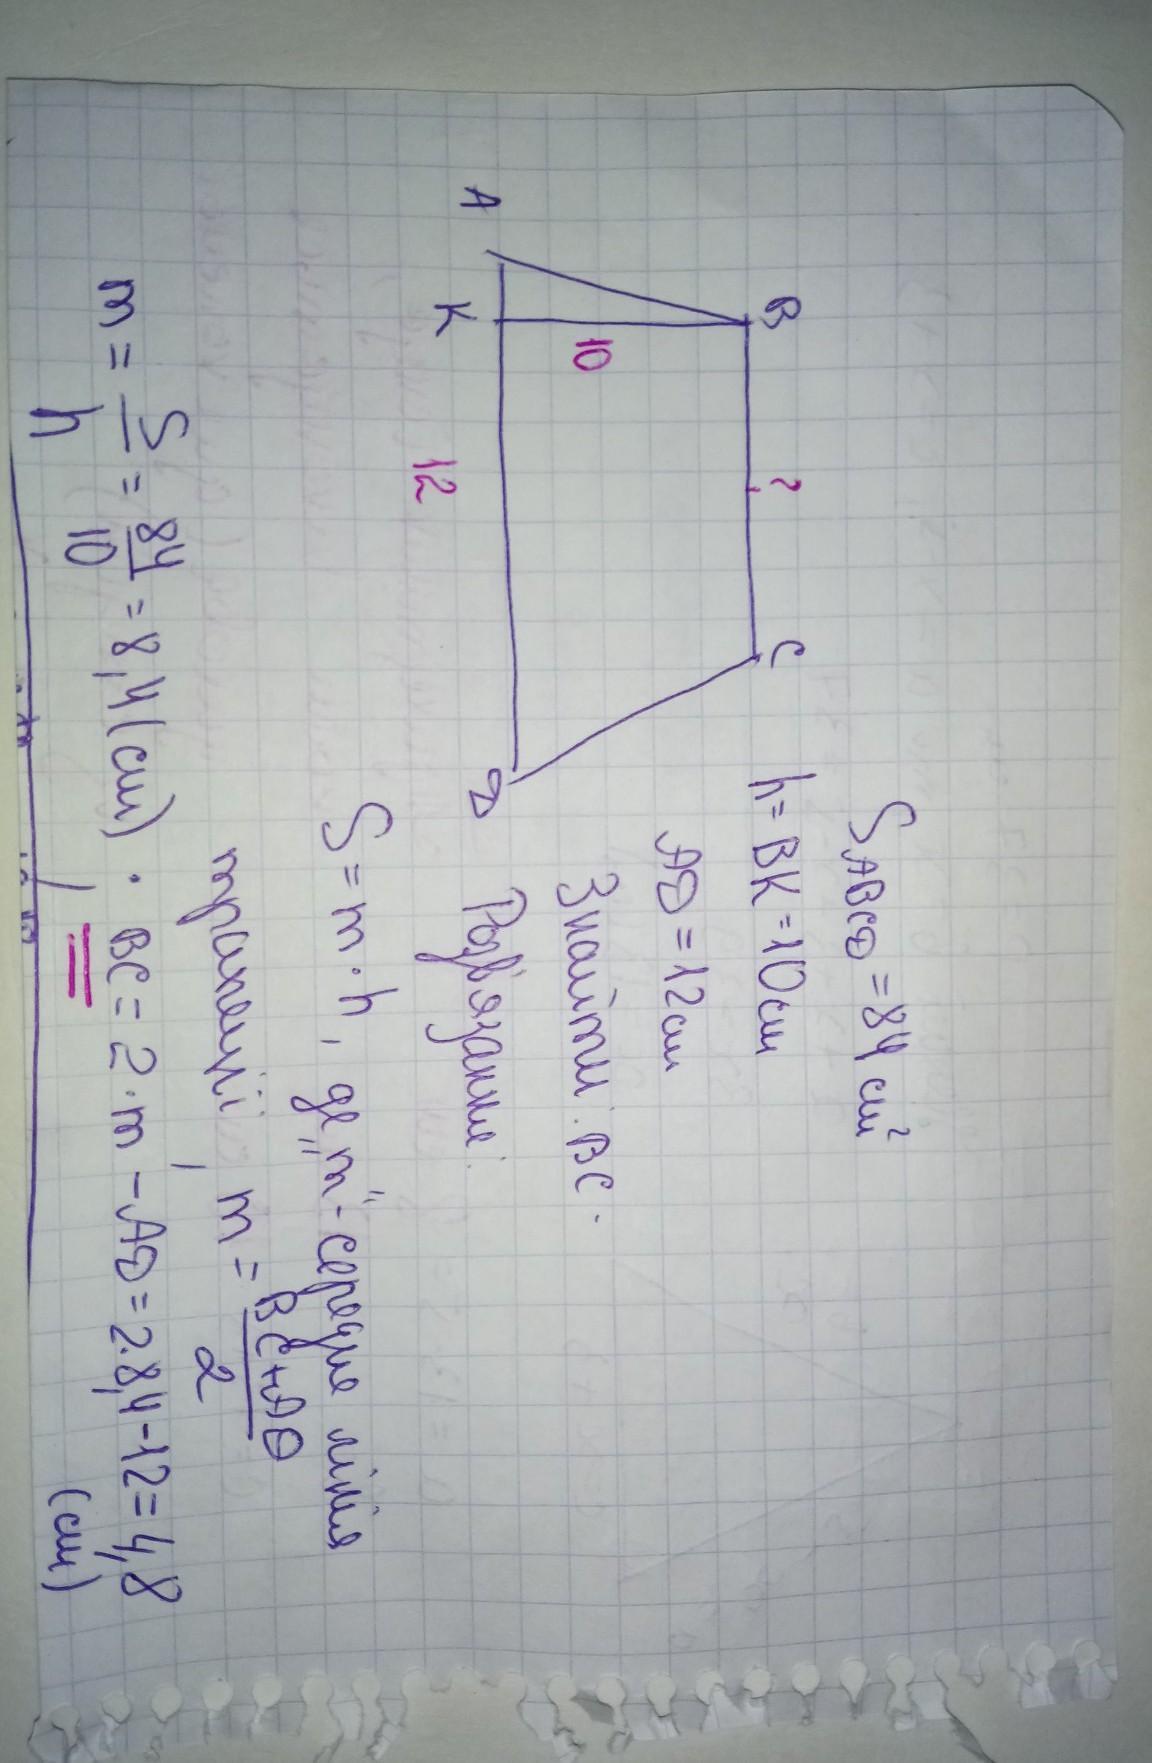 B ? C
10
A K 12 D
S ABCD = 84 см²
h = BK = 10 см
AD = 12 см
Знайти: BC.
Розв'язання:
S = m · h, де „m" - середня лінія
трапеції, m = BC + AD / 2
m = S / h = 84 / 10 = 8,4 (см). BC = 2 · m - AD = 2 · 8,4 - 12 = 4,8
(см)